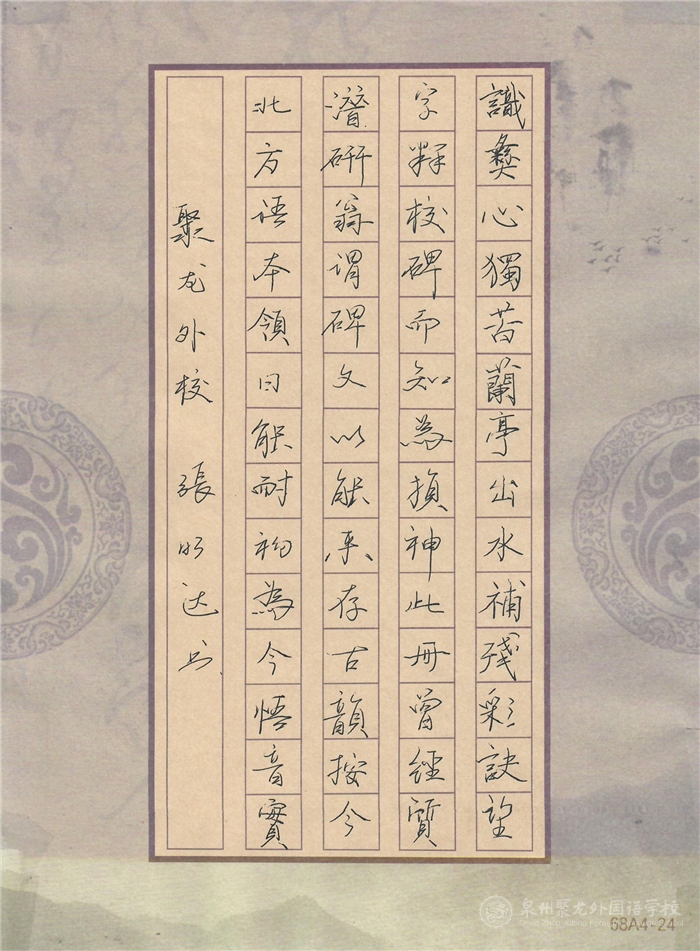 識彝心獨苦蘭亭出水補殘彩訣望
字釋校碑而知為損神此册曾經質
潛研翁謂碑文以能奈存古韻按今
北方语本領曰能耐初為今悟音實
聚龙外校 張明达书
泉州聚龙外国语学校
68A4-24